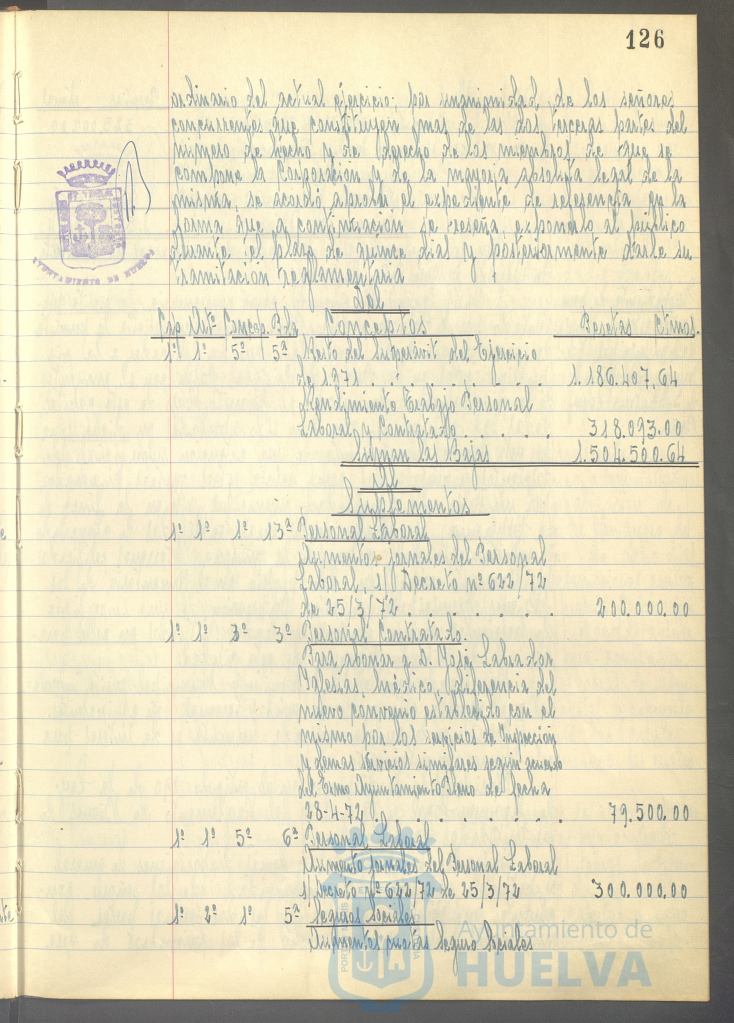 126
ordinario del actual ejercicio; por unanimidad de los señores
concurrentes que constituyen mas de las dos terceras partes del
número de hecho y de derecho de los miembros de que se
compone la Corporación y de la mayoria absoluta legal de la
misma, se acordó aprobar el expediente de referencia en la
forma que a continuación se reseña, exponerlo al público
durante el plazo de quince dias y posteriormente darle su
tramitación reglamentaria
AYUNTAMIENTO DE HUELVA
Del
Cap. Artº Concep. Pda Conceptos Pesetas Ctmos.
1º 1º 5º 5ª Resto del Superávit del Ejercicio
de 1971 . . . . . . . . 1.186.407,64
Rendimiento Trabajo Personal
Laboral y Contratado . . . . . 318.093.00
Suman las Bajas 1.504.500.64
Al
Suplementos
1º 1º 1º 13ª Personal Laboral
Aumentos jornales del Personal
Laboral, s/ Decreto nº 622/72
de 25/3/72 . . . . . . . 200.000.00
1º 1º 3º 3ª Personal Contratado.
Para abonar a D. José Labrador
Iglesias, Médico, diferencia del
nuevo convenio establecido con el
mismo por los servicios de Inspección
y demas servicios similares según acuerdo
del Excmo Ayuntamiento Pleno de fecha
28-4-72 . . . . . . . . 79,500.00
1º 1º 5º 6ª Personal Laboral
Aumento jornales del Personal Laboral
s/Decreto nº 622/72 de 25/3/72 300.000.00
1º 2º 1º 5ª Seguros Sociales
Aumentos cuotas Seguro Sociales
Ayuntamiento de
HUELVA